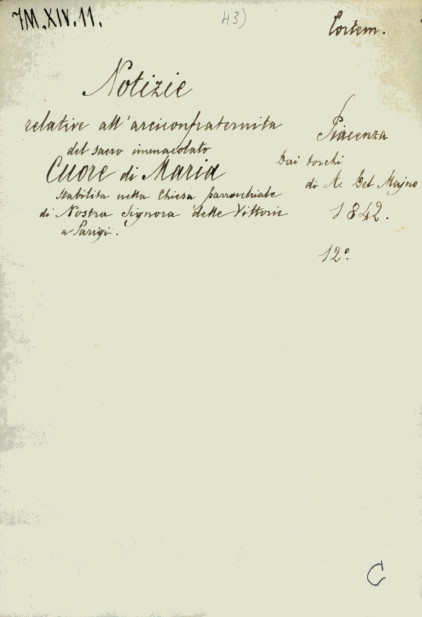 7M.XIV.11.
43)
Cortem.
Notizie
relative all'arciconfraternita
del sacro immacolato
Cuore di Maria
stabilita nella Chiesa parrocchiale
di Nostra Signora delle Vittorie
a Parigi.
Piacenza
Dai torchi
di A. Del Majno
1842.
12°.
C